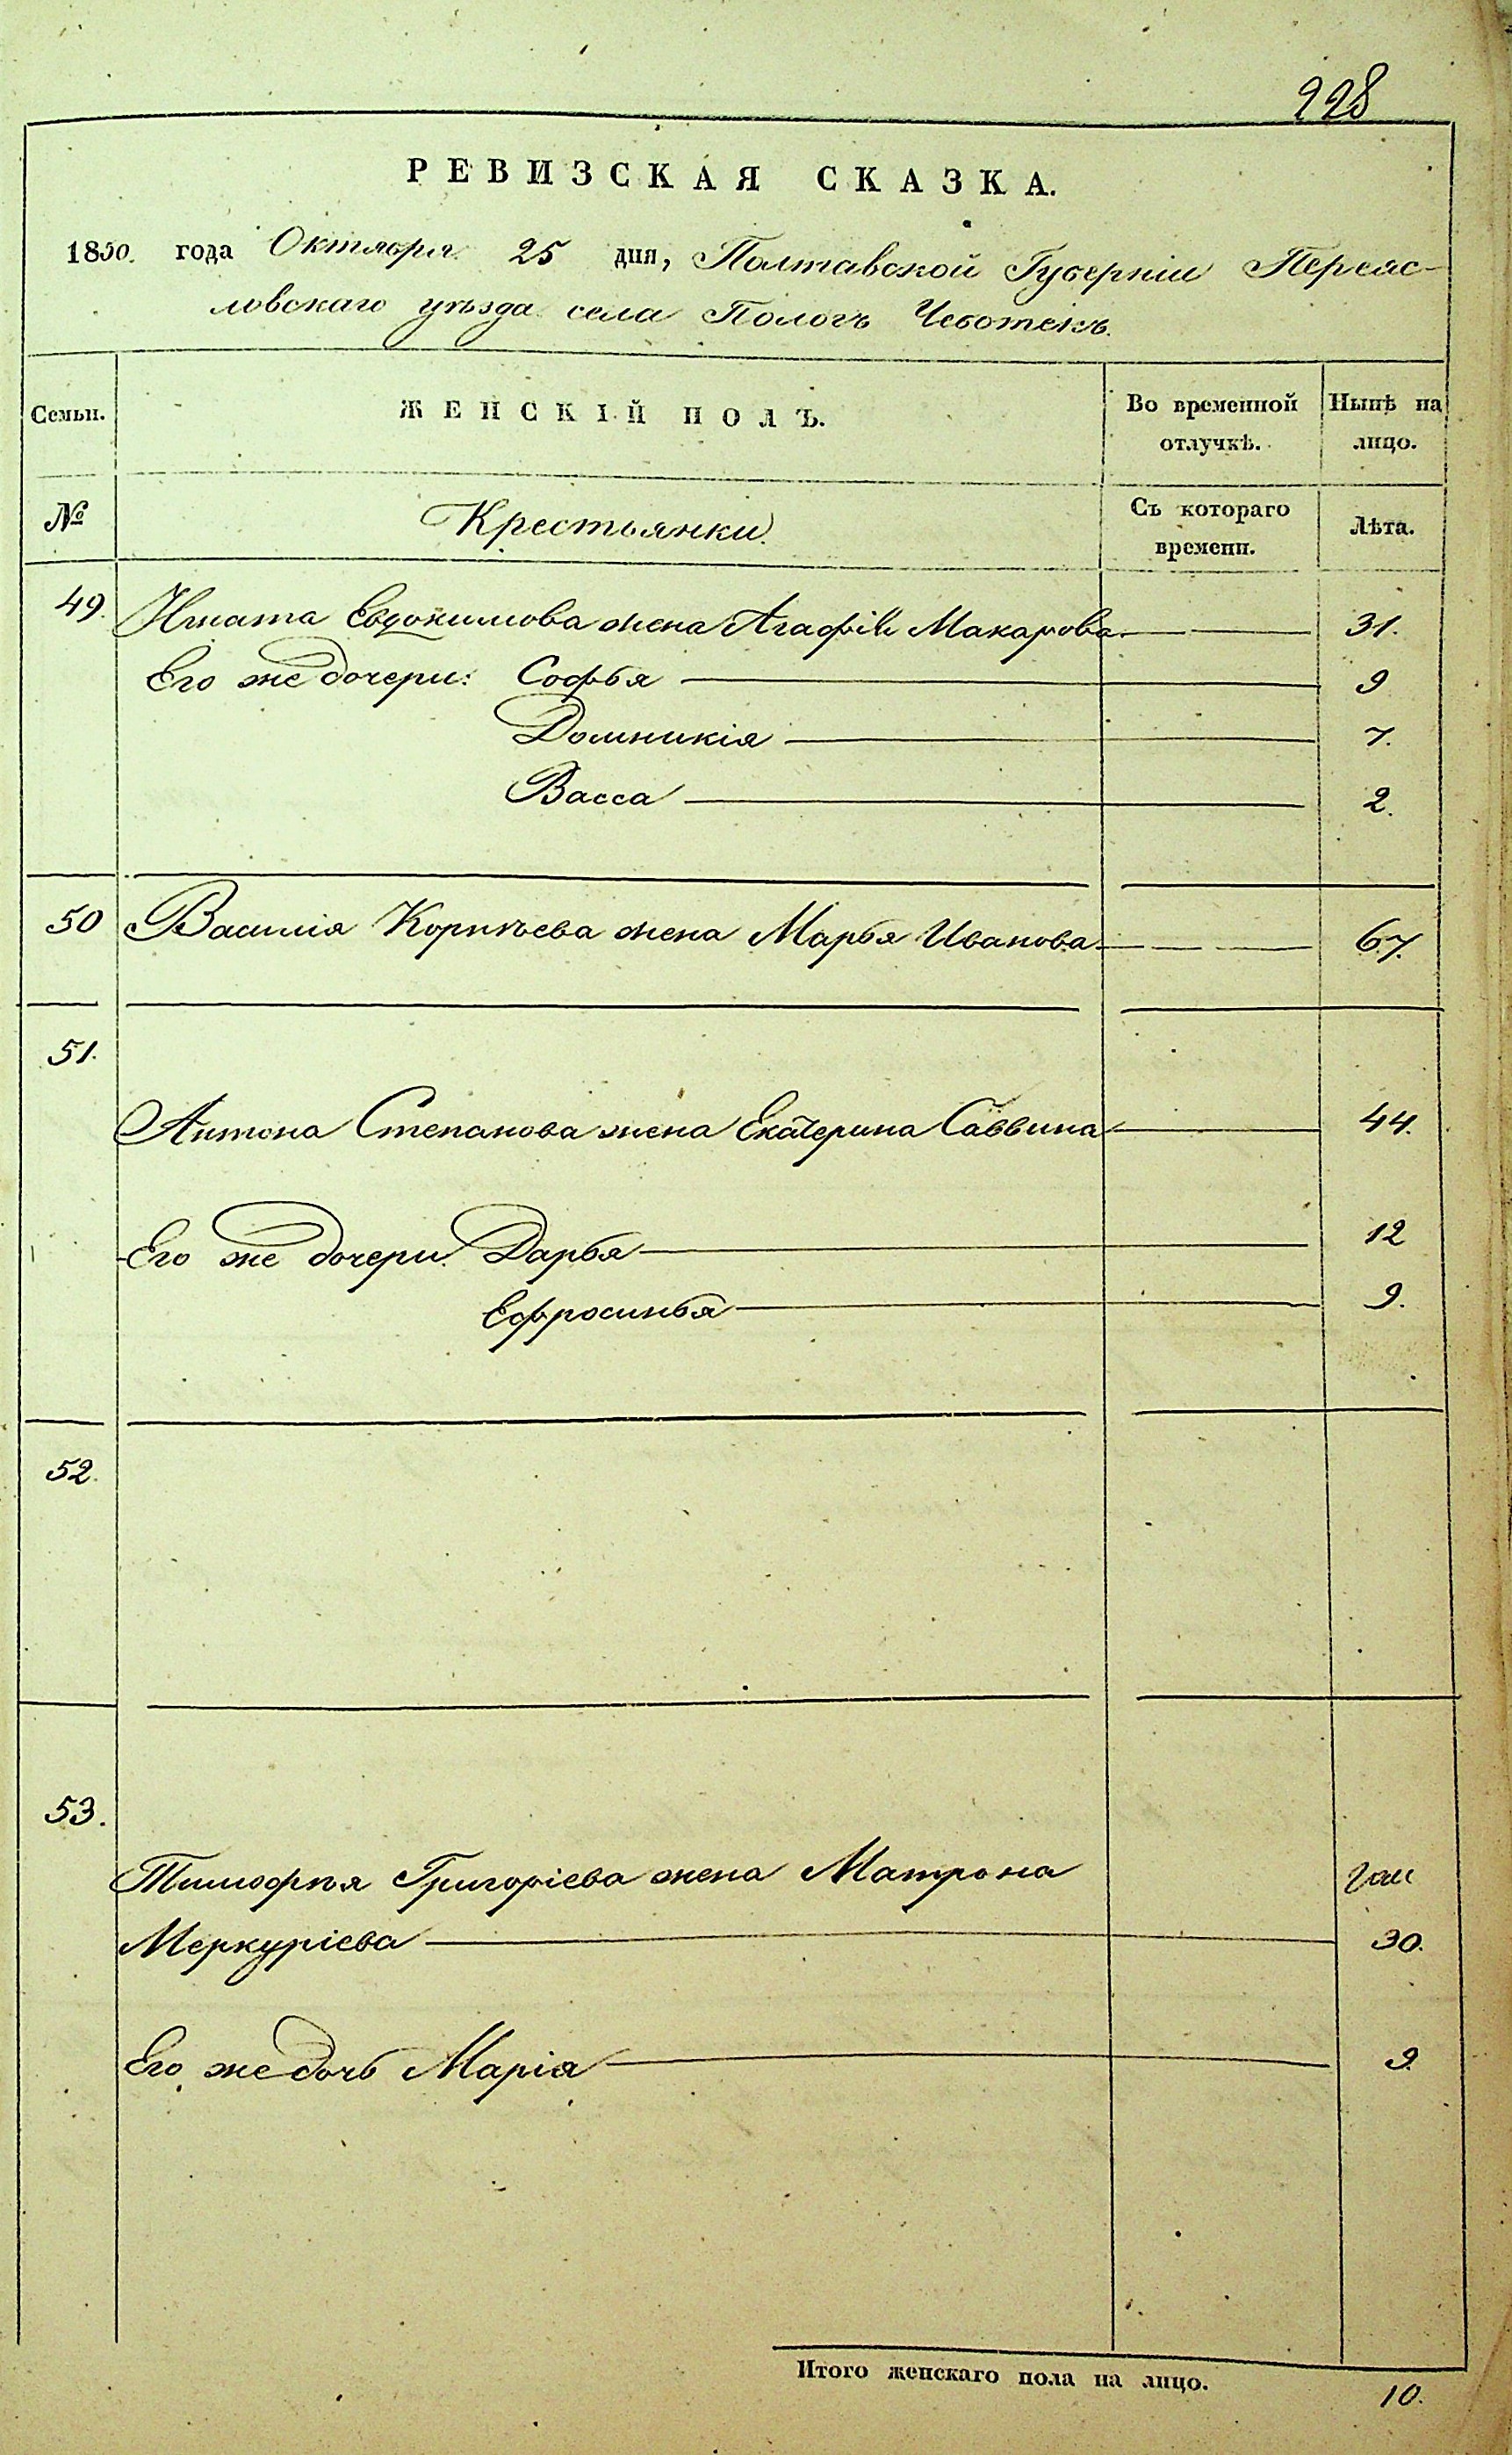 228
РЕВИЗСКАЯ СКАЗКА.
1850. года Октября 25 дня, Полтавской Губерніи Переяс-
ловскаго уѣзда села Пологъ Чеботекъ.
Семьи. ЖЕНСКІЙ ПОЛЪ. Во временной отлучкѣ. Нынѣ на лицо.
№ Крестьянки. Съ котораго времени. Лѣта.
49. Игната Евдокимова жена Агафія Макарова 31.
Его же дочери: Софья 9
Домникія 7.
Васса 2.
50 Василія Корнѣева жена Марья Иванова 67.
51.
Антона Степанова жена Екатерина Саввина 44.
Его же дочери. Дарья 12
Ефросинья 9.
52.
53.
Тимофѣя Григоріева жена Матрона
Меркуріева 30.
Его же дочь Марія 9.
Итого женскаго пола на лицо. 10.